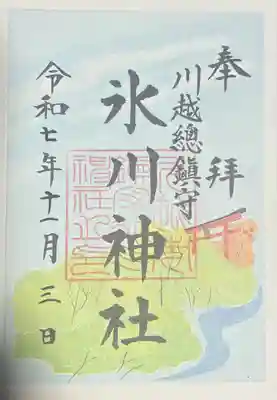 奉拝
川越總鎮守
氷川神社
令和七年十一月三日